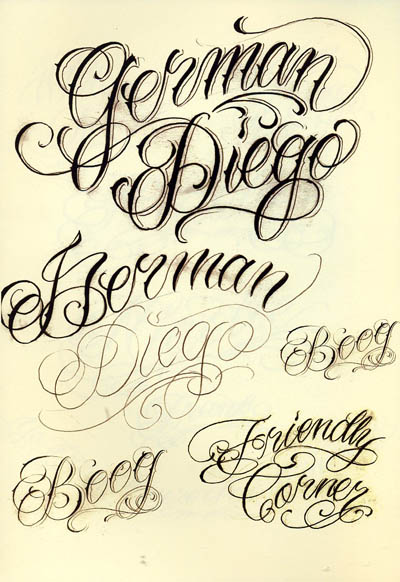 German
Diego
Herman
Diego
Boog
Boog
Friendly
Corner